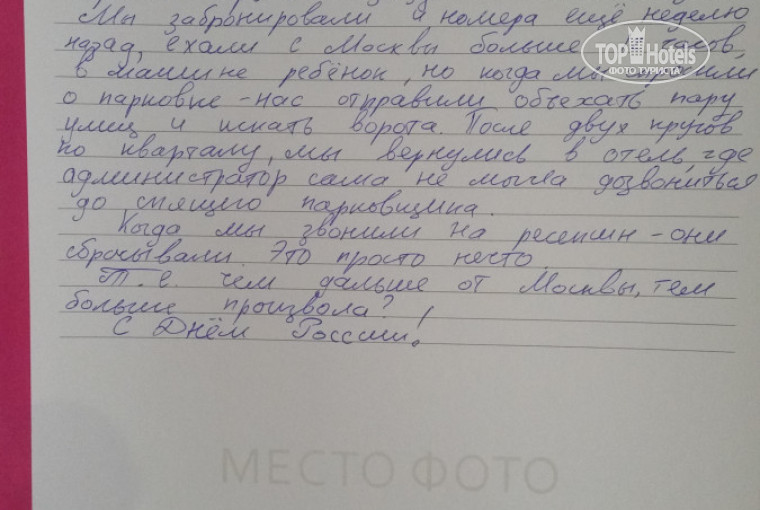 Мы забронировали 4 номера ещё неделю
назад, ехали с Москвы больше часов,
в машине ребёнок, но когда мы
о парковке - нас отправили объехать пару
улиц и искать ворота. После двух кругов
по кварталу, мы вернулись в отель, где
администратор сама не могла дозвониться
до спящего парковщика.
Когда мы звонили на ресепшн - они
сбрасывали. Это просто нечто.
Т. е. чем дальше от Москвы, тем
больше произвола?!
С Днём России!
TOP Hotels
ФОТО ТУРИСТА
МЕСТО ФОТО